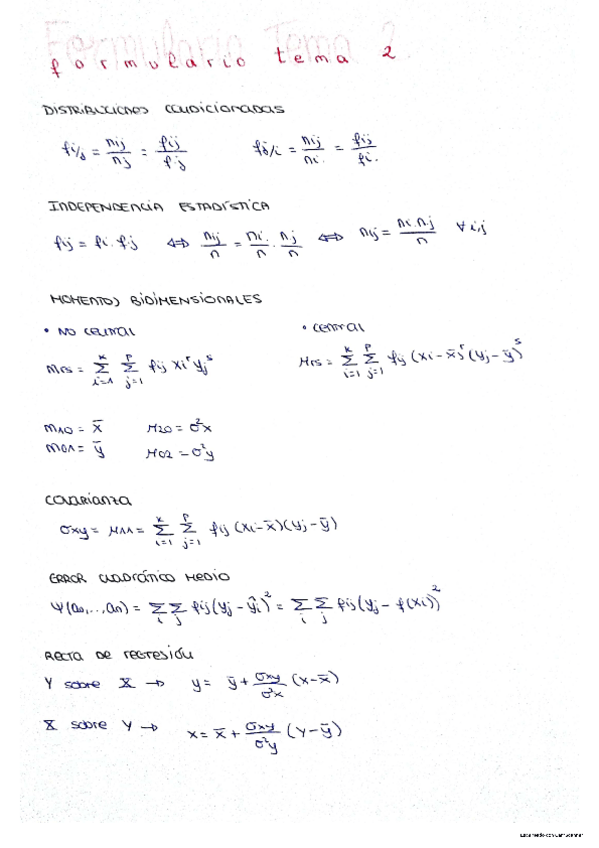 Formulario Tema 2
formulario tema 2
DISTRIBUCIONES CONDICIONADAS
fi/j = nij/nj = fij/f.j   fj/i = nij/ni. = fij/fi.
INDEPENDENCIA ESTADÍSTICA
fij = fi. f.j ⇔ nij/n = ni./n · n.j/n ⇔ nij = ni. n.j/n ∀ i,j
MOMENTOS BIDIMENSIONALES
• NO CENTRAL   • CENTRAL
mrs = Σ_{i=1}^{k} Σ_{j=1}^{p} fij xi^r yj^s   μrs = Σ_{i=1}^{k} Σ_{j=1}^{p} fij (xi - x̄)^r (yj - ȳ)^s
m10 = x̄   μ20 = σ²x
m01 = ȳ   μ02 = σ²y
COVARIANZA
σxy = μ11 = Σ_{i=1}^{k} Σ_{j=1}^{p} fij (xi - x̄)(yj - ȳ)
ERROR CUADRÁTICO MEDIO
Ψ(a0,...,an) = Σ_i Σ_j fij (yj - ŷi)² = Σ_i Σ_j fij (yj - f(xi))²
RECTA DE REGRESIÓN
Y sobre X → y = ȳ + σxy/σ²x (x - x̄)
X sobre Y → x = x̄ + σxy/σ²y (y - ȳ)
Escaneado con CamScanner